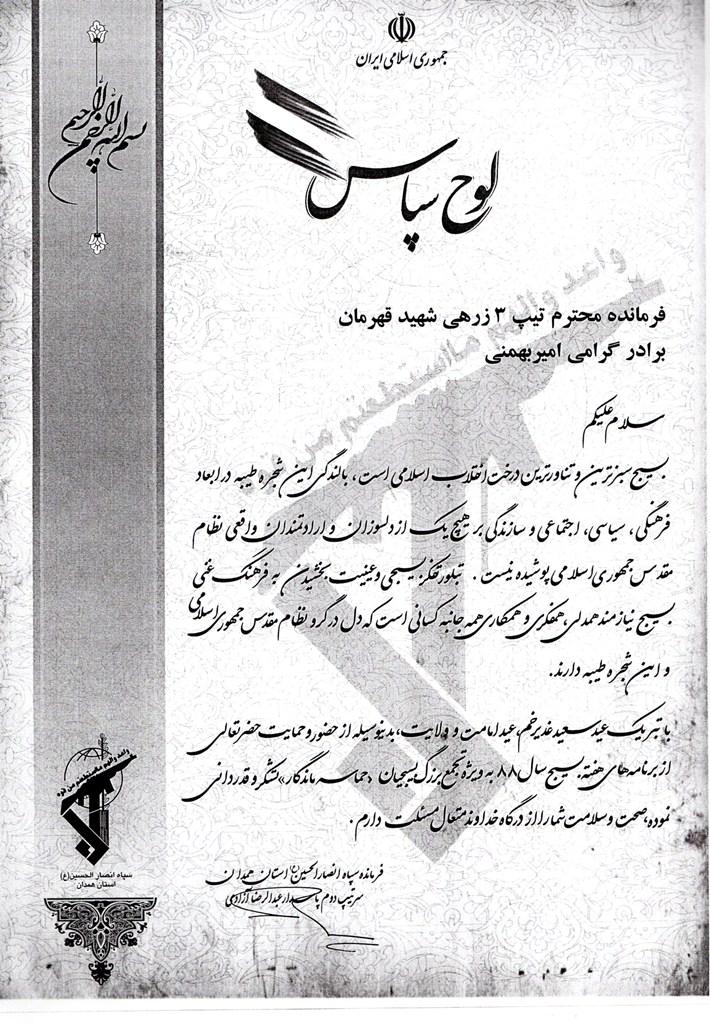 جمهوری اسلامی ایران
بسم الله الرحمن الرحیم
لوح سپاس
واعدوالهم مااستطعتم من
فرمانده محترم تیپ ۳ زرهی شهید قهرمان
برادر گرامی امیربهمنی
سلام علیکم
بسیج سبزترین و تناورترین درخت انقلاب اسلامی است، بالندگی این شجره طیبه در ابعاد
فرهنگی، سیاسی، اجتماعی و سازندگی بر هیچ یک از دلسوزان و ارادتمندان واقعی نظام
مقدس جمهوری اسلامی پوشیده نیست. تبلور تفکر بسیجی و عینیت بخشیدن به فرهنگ غنی
بسیج نیازمند همدلی، همفکری و همکاری همه جانبه کسانی است که دل در گرو نظام مقدس جمهوری اسلامی
و این شجره طیبه دارند.
با تبریک عید سعید غدیرخم، عید امامت و ولایت، بدینوسیله از حضور و حمایت حضرتعالی
از برنامه‌های هفته بسیج سال ۸۸ به ویژه تجمع بزرگ بسیجیان «حماسه ماندگار» تشکر و قدردانی
نموده، صحت و سلامت شما را از درگاه خداوند متعال مسئلت دارم.
فرمانده سپاه انصارالحسین(ع) استان همدان
سرتیپ دوم پاسدار عبدالرضا آزادی
واعدوالهم مااستطعتم من قوه
سپاه انصار الحسین(ع)
استان همدان